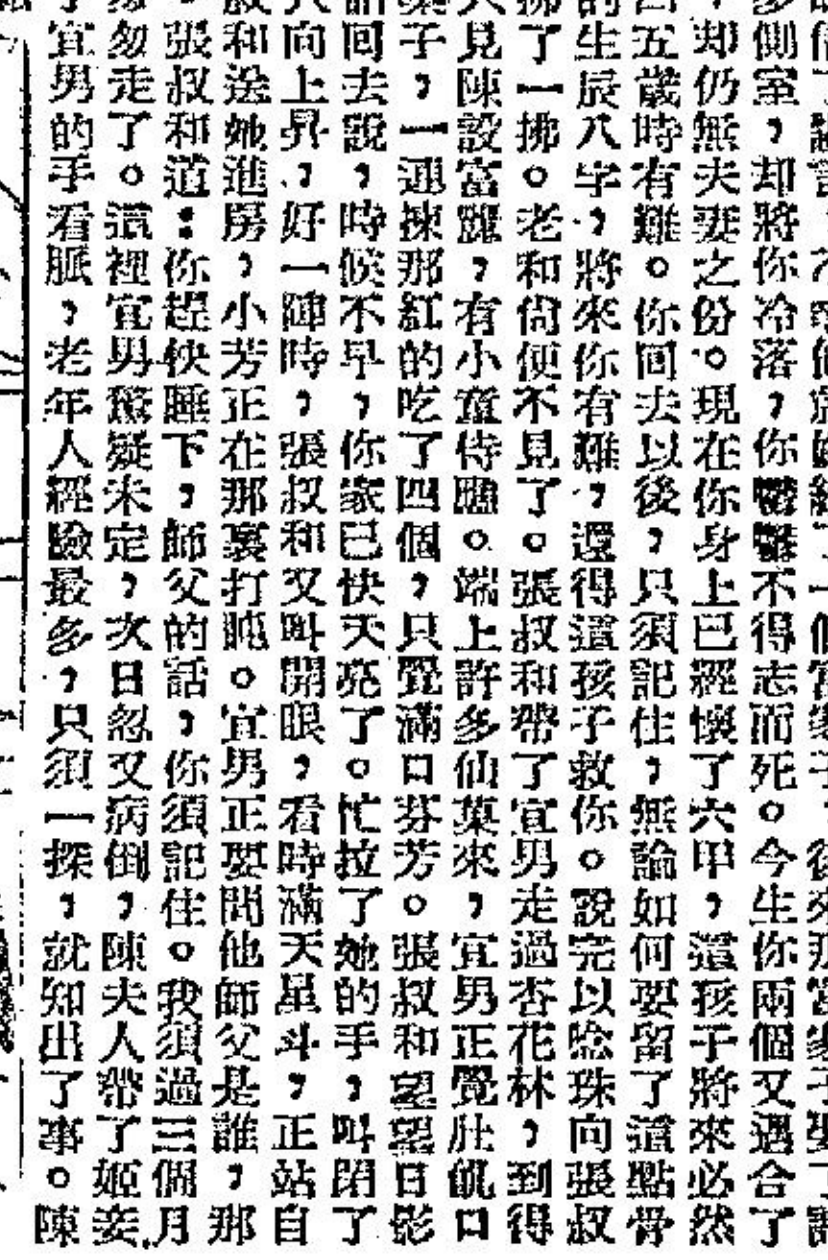 多側室，却將你冷落，你鬱鬱不得志而死。今生你兩個又遇合了
，却仍無夫妻之份。現在你身上已經懷了六甲，這孩子將來必然
四五歲時有難。你回去以後，只須記住，無論如何要留了這點骨
的生辰八字，將來你有難，還得這孩子救你。說完以唸珠向張叔
拂了一拂。老和尚便不見了。張叔和帶了宜男走過杏花林，到得
見陳設富麗，有小童侍膳。端上許多仙菓來，宜男正覺肚飢口
菓子，一連揀那紅的吃了四個，只覺滿口芬芳。張叔和望望日影
話回去說，時候不早，你家已快天亮了。忙拉了她的手，叫閉了
向上昇，好一陣時，張叔和又叫開眼，看時滿天星斗，正站自
叔和送她進房，小芳正在那裏打盹。宜男正要問他師父是誰，那
，張叔和道：你趕快睡下，師父的話，你須記住。我須過三個月
匆匆走了。這裡宜男驚疑未定，次日忽又病倒，陳夫人帶了姬妾
宜男的手看脈，老年人經驗最多，只須一探，就知出了事。陳